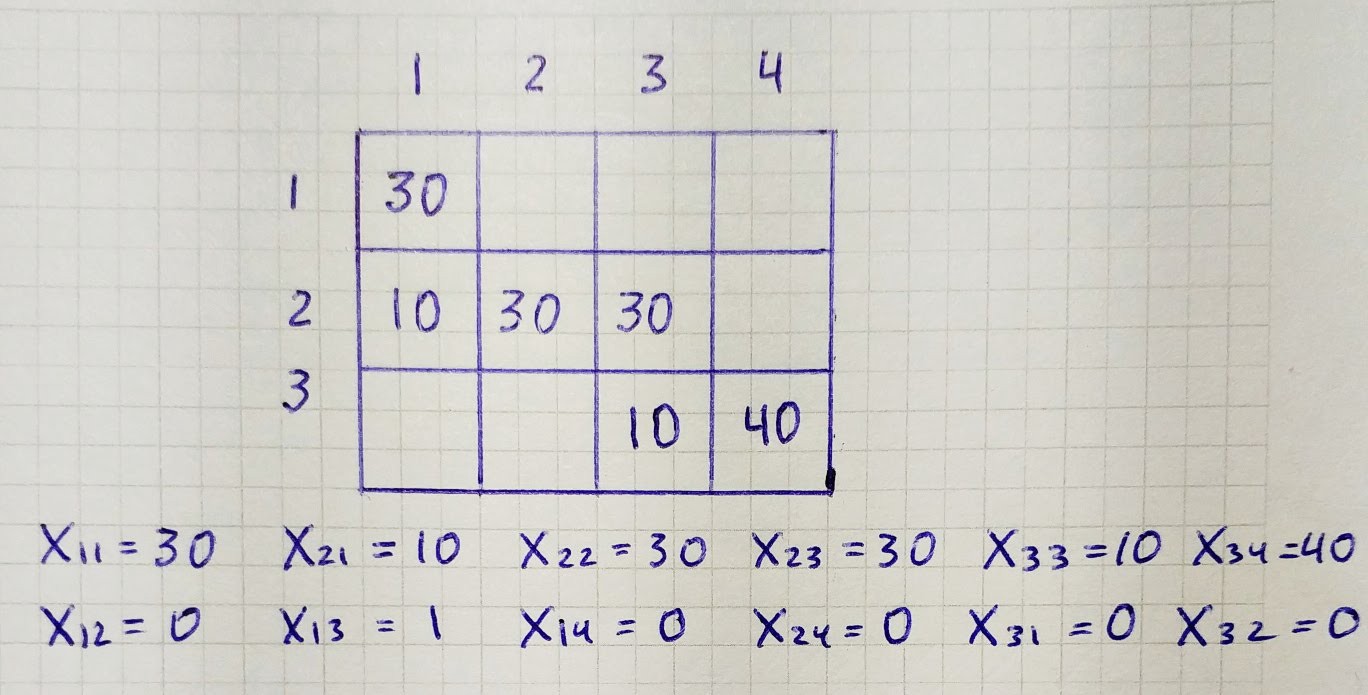 1 2 3 4
1 30
2 10 30 30
3 10 40
X11 = 30 X21 = 10 X22 = 30 X23 = 30 X33 = 10 X34 = 40
X12 = 0 X13 = 1 X14 = 0 X24 = 0 X31 = 0 X32 = 0